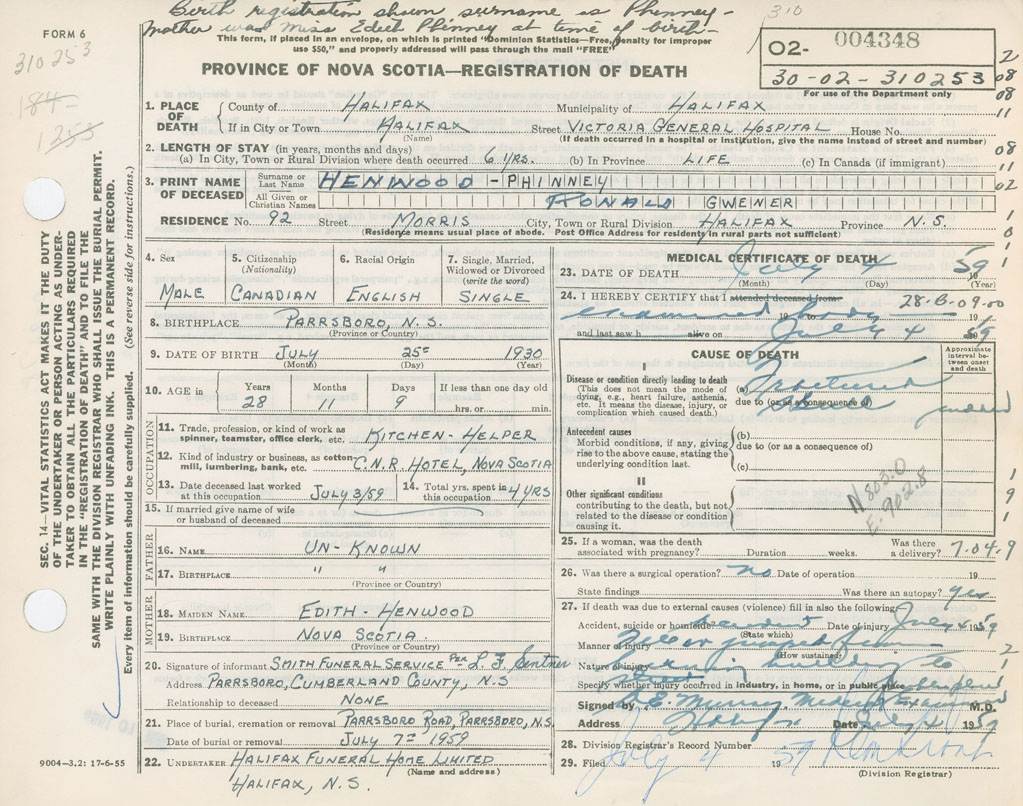 Birth registration shown surname as Phinney-
mother was Miss Edith Phinney at time of birth-
310
FORM 6
310253
184
1253
This form, if placed in an envelope, on which is printed "Dominion Statistics—Free, penalty for improper
use $50," and properly addressed will pass through the mail "FREE"
PROVINCE OF NOVA SCOTIA—REGISTRATION OF DEATH
02- 004348
30-02-310253
For use of the Department only
2
08
08
11
08
11
02
1. PLACE OF DEATH County of HALIFAX Municipality of HALIFAX
If in City or Town HALIFAX Street VICTORIA GENERAL HOSPITAL House No.
(Name) (If death occurred in a hospital or institution, give the name instead of street and number)
2. LENGTH OF STAY (in years, months and days)
(a) In City, Town or Rural Division where death occurred 6 YRS. (b) In Province LIFE (c) In Canada (if immigrant)
3. PRINT NAME OF DECEASED Surname or Last Name HENWOOD-PHINNEY
All Given or Christian Names RONALD GWENER
RESIDENCE No. 92 Street MORRIS City, Town or Rural Division HALIFAX Province N.S.
(Residence means usual place of abode. Post Office Address for residents in rural parts not sufficient)
4. Sex MALE
5. Citizenship (Nationality) CANADIAN
6. Racial Origin ENGLISH
7. Single, Married, Widowed or Divorced (write the word) SINGLE
8. BIRTHPLACE PARRSBORO, N.S.
(Province or Country)
9. DATE OF BIRTH JULY 25 1930
(Month) (Day) (Year)
10. AGE in Years 28 Months 11 Days 9 If less than one day old hrs. or min.
OCCUPATION
11. Trade, profession, or kind of work as spinner, teamster, office clerk, etc. KITCHEN-HELPER
12. Kind of industry or business, as cotton mill, lumbering, bank, etc. C.N.R. HOTEL, NOVA SCOTIA
13. Date deceased last worked at this occupation JULY 3/59
14. Total yrs. spent in this occupation 4 YRS
15. If married give name of wife or husband of deceased
FATHER
16. NAME UN-KNOWN
17. BIRTHPLACE " "
(Province or Country)
MOTHER
18. MAIDEN NAME EDITH-HENWOOD
19. BIRTHPLACE NOVA SCOTIA.
(Province or Country)
20. Signature of informant SMITH FUNERAL SERVICE PER L. F.
Address PARRSBORO, CUMBERLAND COUNTY, N.S
Relationship to deceased NONE
21. Place of burial, cremation or removal PARRSBORO ROAD, PARRSBORO, N.S.
Date of burial or removal JULY 7 1959
22. UNDERTAKER HALIFAX FUNERAL HOME LIMITED
(Name and address)
HALIFAX, N.S.
MEDICAL CERTIFICATE OF DEATH
23. DATE OF DEATH July 4 59
(Month) (Day) (Year)
24. I HEREBY CERTIFY that I attended deceased from 28-B-09.00
examined body 19
and last saw h alive on July 4 59
CAUSE OF DEATH
Approximate interval between onset and death
I
Disease or condition directly leading to death
(This does not mean the mode of dying, e.g., heart failure, asthenia, etc. It means the disease, injury, or complication which caused death.)
(a) Fractured
due to (or as a consequence of)
Antecedent causes
Morbid conditions, if any, giving rise to the above cause, stating the underlying condition last.
(b)
due to (or as a consequence of)
(c)
II
Other significant conditions
contributing to the death, but not related to the disease or condition causing it.
N 803.0
E. 902.8
25. If a woman, was the death associated with pregnancy? Duration weeks. Was there a delivery? 7.04.9
26. Was there a surgical operation? no Date of operation 19
State findings Was there an autopsy? yes
27. If death was due to external causes (violence) fill in also the following:
Accident, suicide or homicide accident Date of injury July 4 1959
(State which)
Manner of injury Fell or jumped from
(How sustained)
Nature of injury building to
Specify whether injury occurred in industry, in home, or in public place
Signed by Murray, Medical Examiner M.D.
Address Halifax Date July 4 1959
28. Division Registrar's Record Number
29. Filed July 4 1959
(Division Registrar)
SEC. 14—VITAL STATISTICS ACT MAKES IT THE DUTY
OF THE UNDERTAKER OR PERSON ACTING AS UNDER-
TAKER TO OBTAIN ALL THE PARTICULARS REQUIRED
IN THE "REGISTRATION OF DEATH" AND TO FILE THE
SAME WITH THE DIVISION REGISTRAR WHO SHALL ISSUE THE BURIAL PERMIT.
WRITE PLAINLY WITH UNFADING INK. THIS IS A PERMANENT RECORD.
Every item of information should be carefully supplied. (See reverse side for instructions.)
9004-3.2: 17-6-55